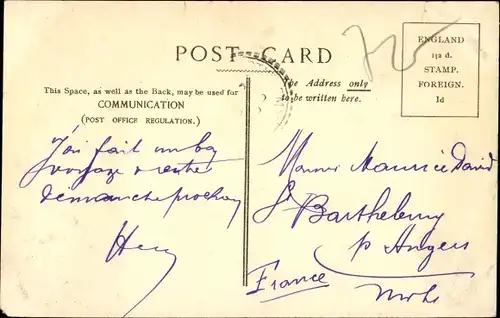 POST CARD
This Space, as well as the Back, may be used for
COMMUNICATION
(POST OFFICE REGULATION.)
he Address only
to be written here.
ENGLAND
1/2 d.
STAMP.
FOREIGN.
1d
J'ai fait un bon
voyage rentre
dimanche prochain
Monsieur Maurice David
St Barthelemy
p Angers
France